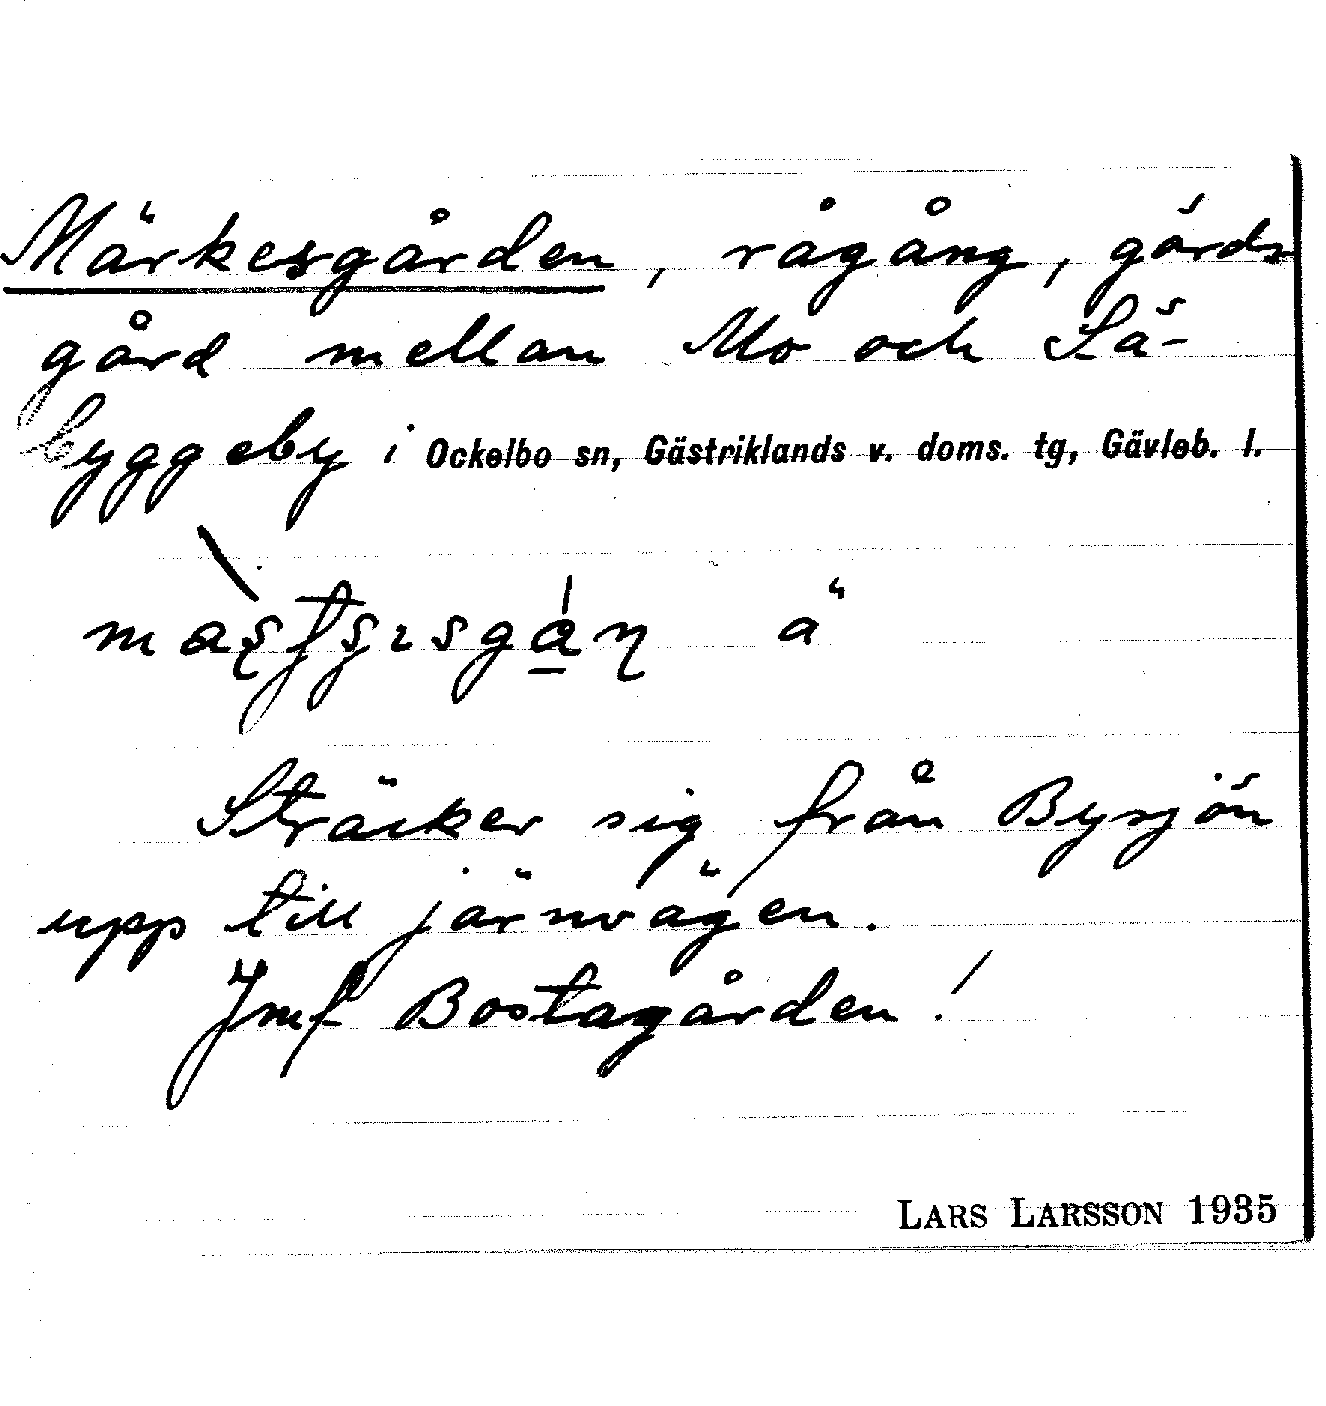 Märkesgården, rågång, gärds
gård mellan Mo och Sä-
byggeby i Ockelbo sn, Gästriklands v. doms. tg, Gävleb. l.
ä
Sträcker sig från Bysjön
upp till järnvägen.
Jmf Bostagården!
LARS LARSSON 1935